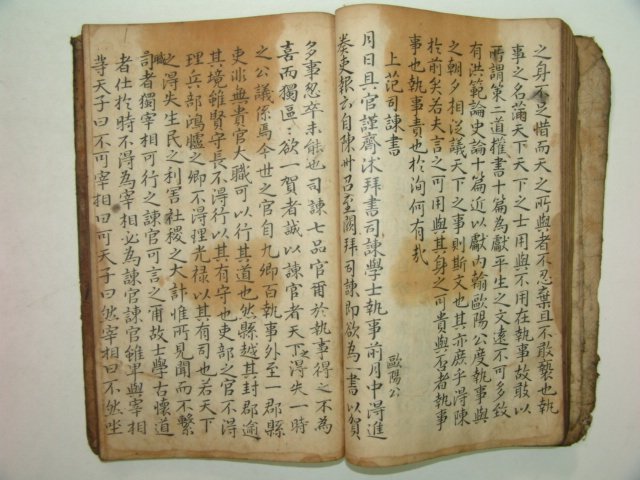 之身不足惜而天之所與者不忍棄且不敢褻也執
事之名滿天下天下之士用與不用在執事故敢以
所謂第二道權書十篇為獻平生之文遠不可多致
有洪範論史論十篇近以獻內翰歐陽公度執事與
之朝夕相泛議天下之事則斯文也其亦庶乎得陳
於前矣若夫言之可用與其身之可貴與否者執事
事也執事責也於洵何有哉
上范司諫書
歐陽公
月日具官謹齋沐拜書司諫學士執事前月中得進
奏吏報云自陳州召至闕拜司諫即欲為一書以賀
多事忽卒未能也司諫七品官爾於執事得之不為
喜而獨區〻欲一賀者誠以諫官者天下之得失一時
之公議係焉今世之官自九卿百執事外至一郡縣
吏非無貴官大職可以行其道也然縣越其封郡逾
其境雖賢守長不得行以其有守也吏部之官不得
理兵部鴻臚之卿不得理光祿以其有司也若天下
之得失生民之利害社稷之大計惟所見聞而不繫
職司者獨宰相可行之諫官可言之爾故士學古懷道
者仕於時不得為宰相必為諫官諫官雖卑與宰相
等天子曰不可宰相曰可天子曰然宰相曰不然坐